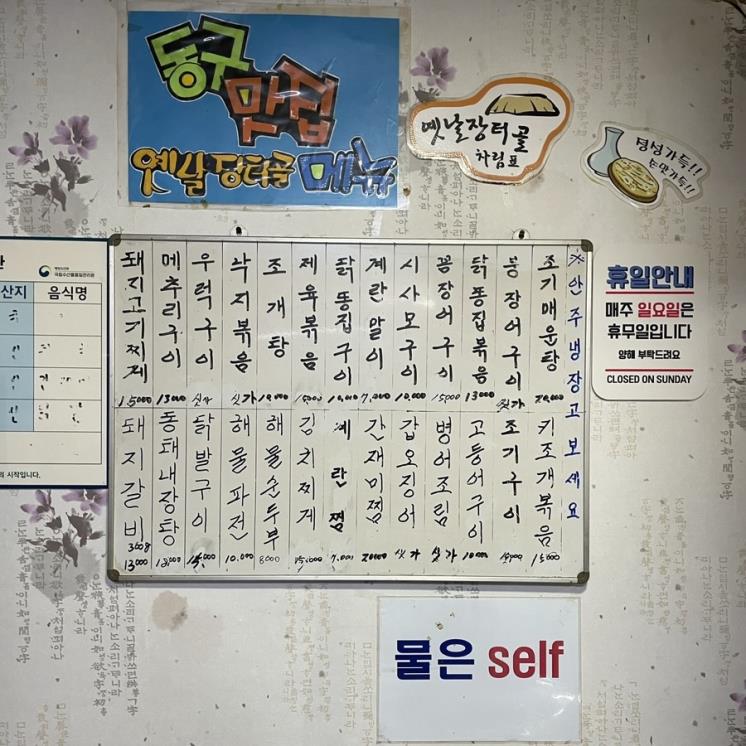 동구
맛집
옛날 장터골 메뉴
옛날장터골
차림표
정성가득!!
손맛가득!!
※안주냉장고보세요
조기매운탕 20,000
붕장어구이 싯가
닭똥집볶음 13000
꼼장어구이 15000
시사모구이 10,000
계란말이 7,000
닭똥집구이 10,000
제육볶음 15000
조개탕 10,000
낙지볶음 싯가
우럭구이 싯가
메추리구이 13000
돼지고기찌게 15000
키조개볶음 15000
조기구이
고등어구이 10000
병어조림 싯가
갑오징어 싯가
간재미찜 20000
계란찜 7,000
김치찌게 15,000
해물순두부 8000
해물파전 10,000
닭발구이 15,000
동태내장탕
돼지갈비 300g 13000
휴일안내
매주 일요일은
휴무일입니다
양해 부탁드려요
CLOSED ON SUNDAY
물은 self
국립수산물품질관리원
산지 음식명
의 시작입니다.